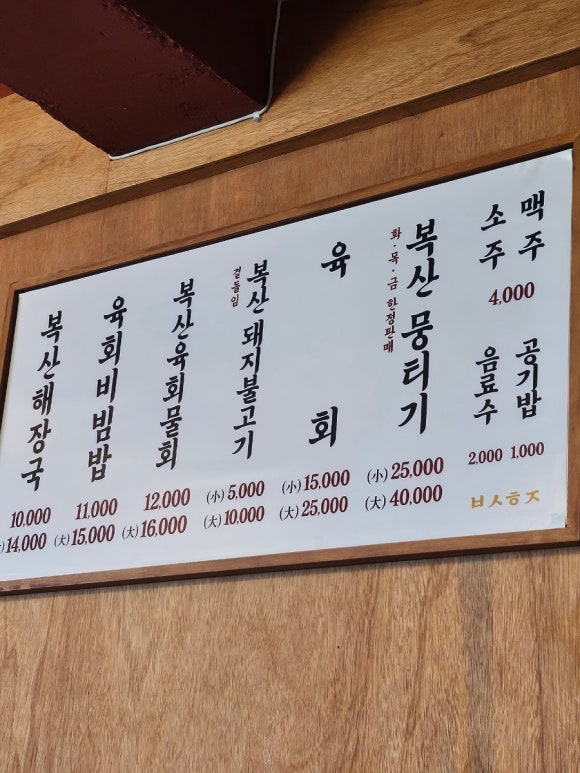 복산해장국
10,000
(大) 14,000
육회비빔밥
11,000
(大) 15,000
복산육회물회
12,000
(大) 16,000
복산돼지불고기
곁들임
(小) 5,000
(大) 10,000
육회
(小) 15,000
(大) 25,000
복산뭉티기
화·목·금 한정판매
(小) 25,000
(大) 40,000
소주
맥주
4,000
음료수
2,000
공기밥
1,000
ㅂㅅㅎㅈ